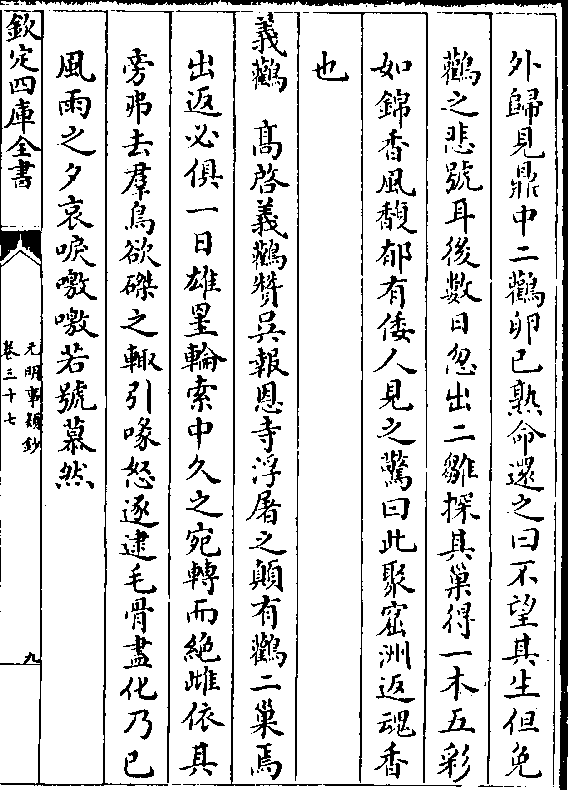 外歸見鼎中二鸛卵已熟命還之曰不望其生但免
鸛之悲號耳後數日忽出二雛探其巢得一木五彩
如錦香風馥郁有倭人見之驚曰此聚窟洲返魂香
也
義鸛　髙啓義鸛贊吳報恩寺浮屠之顛有鸛二巢焉
出返必俱一日雄罣輪索中久之宛轉而絶雌依其
旁弗去羣鳥欲磔之輙引喙怒逐逮毛骨盡化乃已
風雨之夕哀唳噭噭若號慕然
欽定四庫全書
元明事類鈔
卷三十七
九